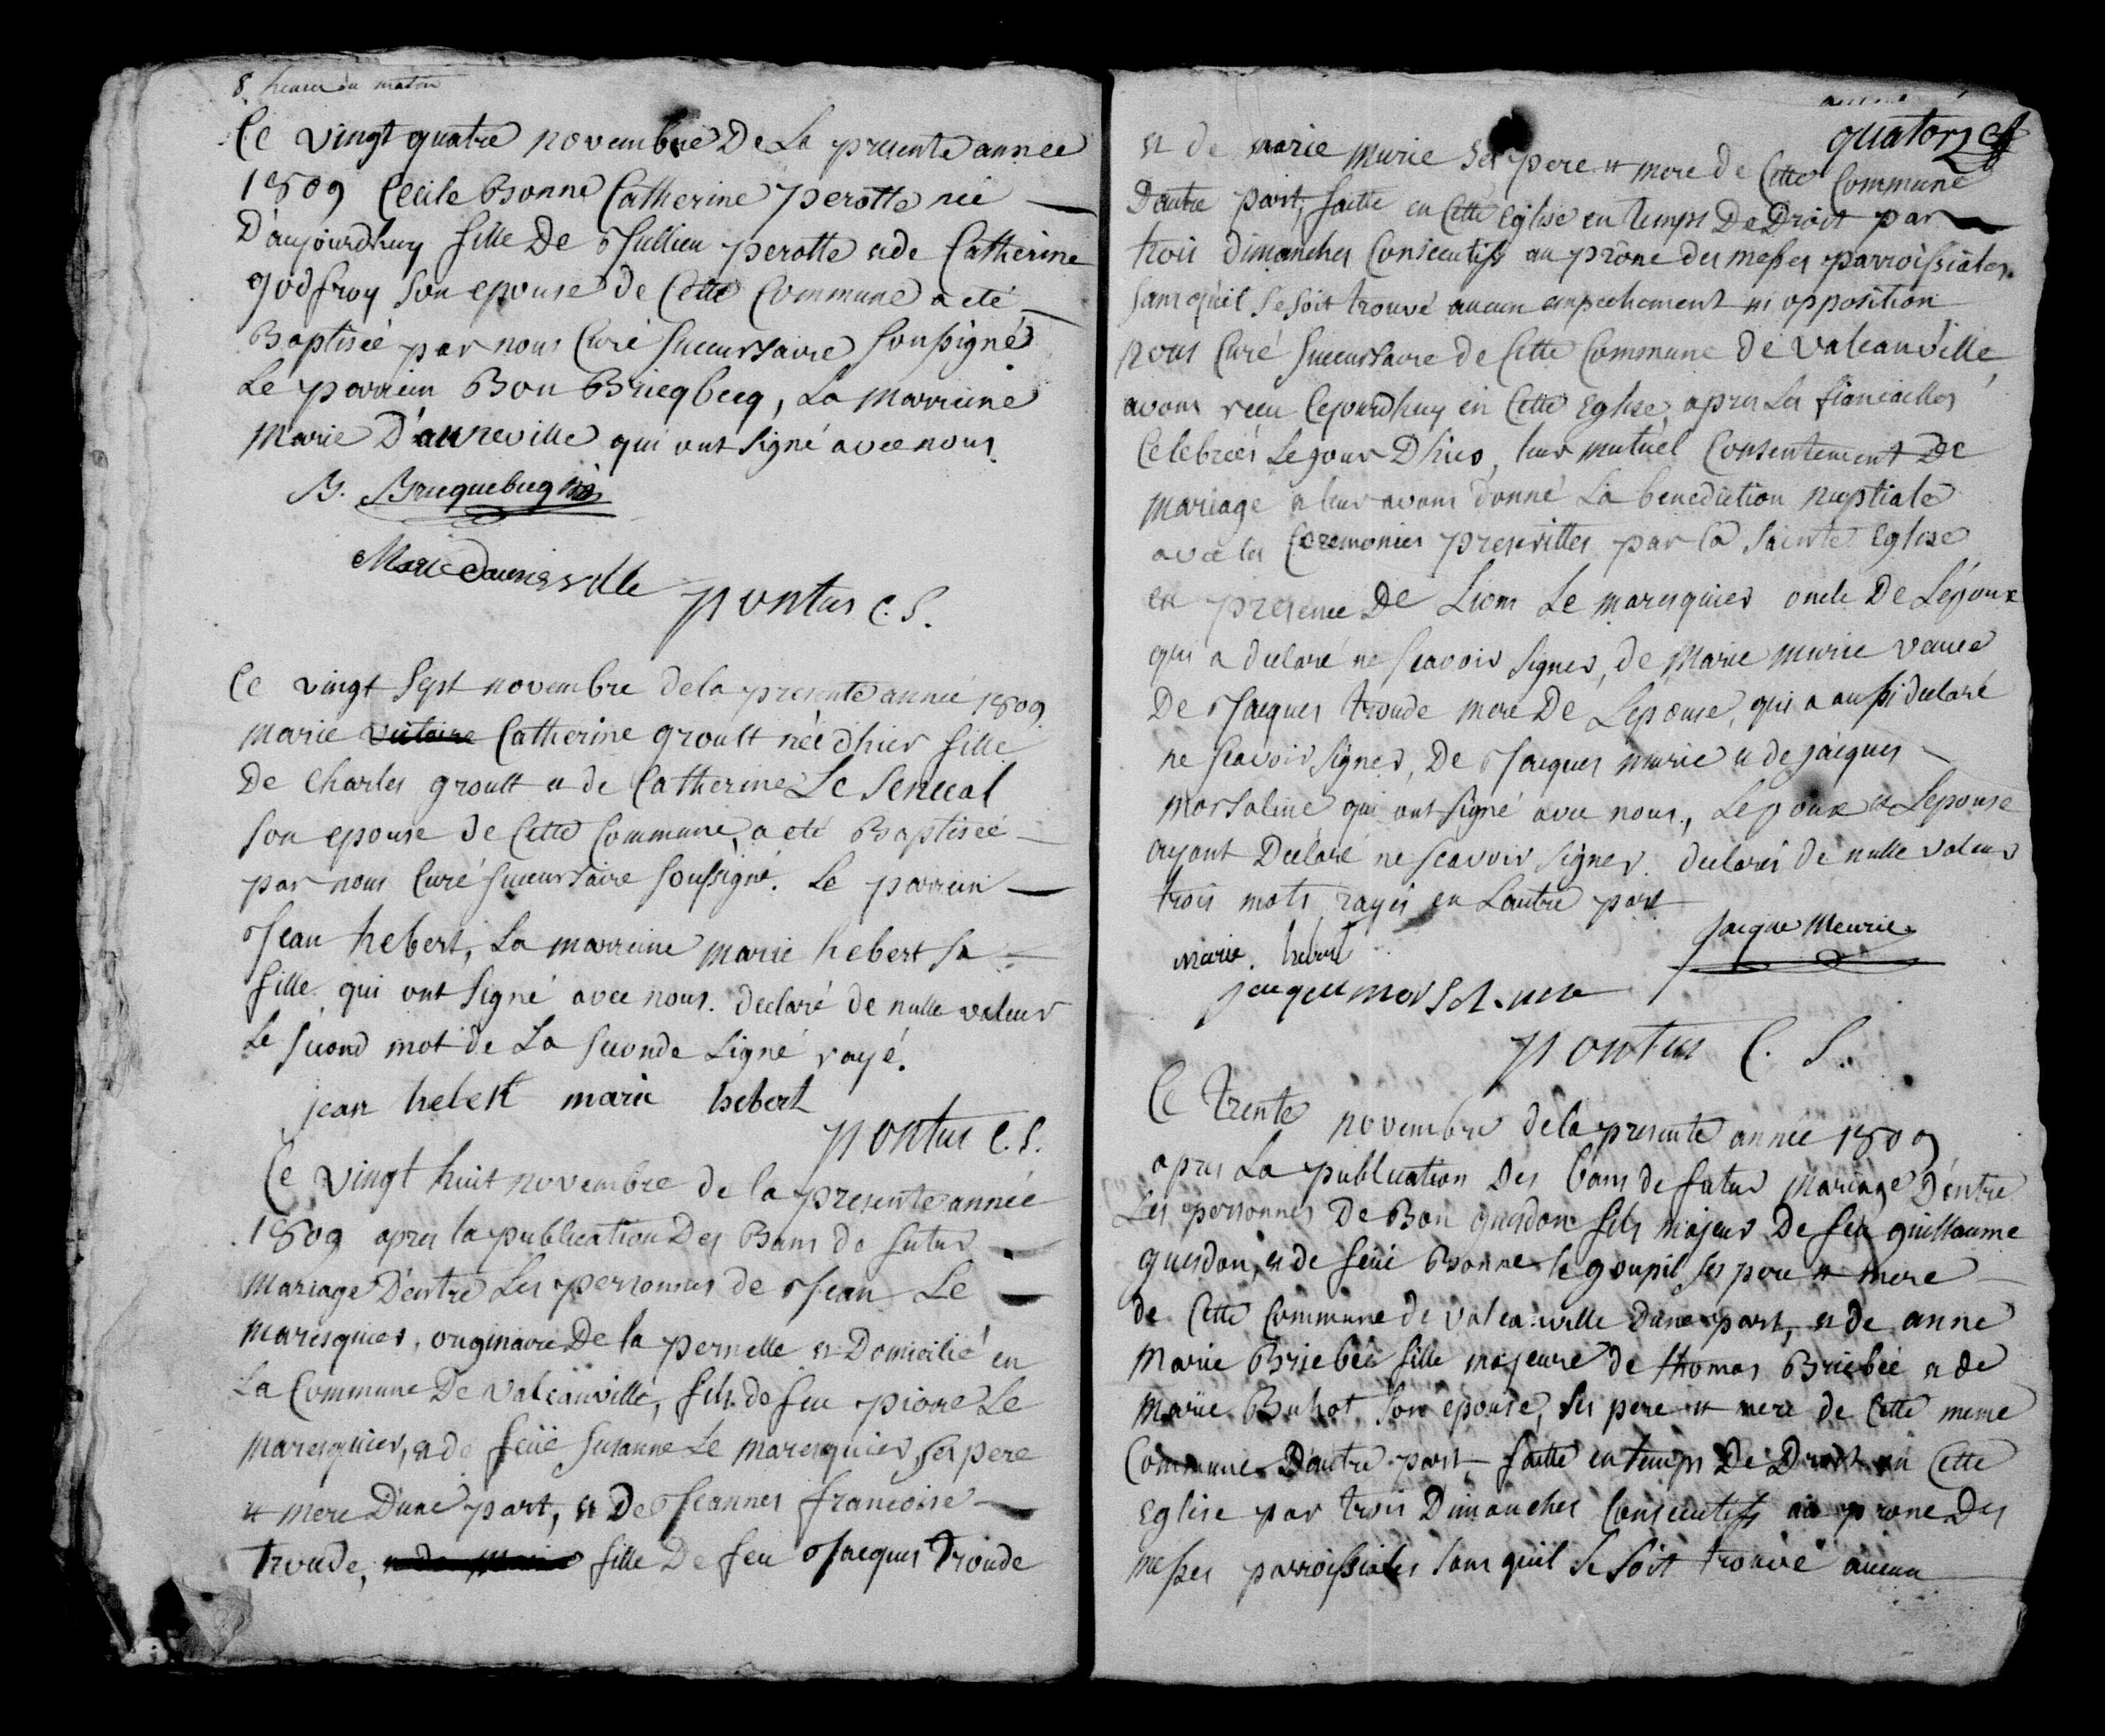 8 heures du matin
Ce vingt quatre novembre De La presente année
1809 Cecile Bonne Catherine perotte née
D'aujourdhuy fille De Jullien perotte & de Catherine
godfroy son epouse de Cette Commune a eté
Baptisée par nous Curé succursaire soussigné
Le parrein Bon Bricqbecq, La marreine
Marie D'anneville qui ont signé avec nous.
B. Bricquebecq
Marie danneville
pontus C. S.
Ce vingt sept novembre de la presente année 1809
marie victoire Catherine groult née d'hier fille
De Charles groult & de Catherine Le Senecal
son epouse de Cette Commune, a eté Baptisée
par nous Curé succursaire soussigné. Le parrein
Jean hebert, La marreine marie hebert sa
fille qui ont signé avec nous. declaré de nulle valeur
Le second mot de La seconde Ligne rayé.
jean hebert marie hebert
pontus C. S.
Ce vingt huit novembre de la presente année
1809 apres la publication Des Bans de futur
mariage D'entre Les personnes de Jean Le
maresquier, originaire De la pernelle & Domicilié en
La Commune De valcanville, fils de feu pierre Le
maresquier, & de feüe susanne Le maresquier, ses pere
& mere D'une part, & De Jeannes francoise
troude, & de Marie fille De feu Jacques Troude
quatorze
& de marie murie ses pere & mere de Cette Commune
Dautre part, faitte en Cette Eglise en temps De Droit par
trois dimanches Consecutifs au prône des messes parroissiales
sans quil se soit trouvé aucun empechement ni opposition
nous Curé succursaire de Cette Commune de valcanville,
avons recu Cejourdhuy en Cette Eglise, apres Les fiancailles
Celebreés Le jour D'hier, leur mutuel Consentement De
mariage & leur avons donné La benediction nuptiale
avec les Ceremonies prescrittes par La Sainte Eglise
en presence De Liom Le maresquier oncle De Lépoux
qui a declaré ne scavoir signer, de Marie murie veuve
De Jacques troude mere De Lepouse, qui a aussi declaré
ne scavoir signer, De Jacques murie & de jacques
morsaline qui ont signé avec nous, Lepoux & Lepouse
ayant Declaré ne scavoir signer. declarés de nulle valeur
trois mots rayés en Lautre part
marie. hebert Jacque Meurie
jacques morsaline
pontus C. S.
Ce trente novembre de la presente année 1809
apres La publication Des bans de futur mariage D'entre
Les personnes De Bon guesdon fils majeur De feu guillaume
guesdon, & de feüe Bonne le goupil ses pere & mere
de Cette Commune de valcanville Dune part, & de anne
Marie Briebée fille majeure de thomas Briebée & de
Marie Buhot son epouse, ses pere & mere de Cette meme
Commune Dautre part, faitte en temps De Droit en Cette
Eglise par trois Dimanches Consecutifs au prone Des
messes parroissiales sans quil se soit trouvé aucun